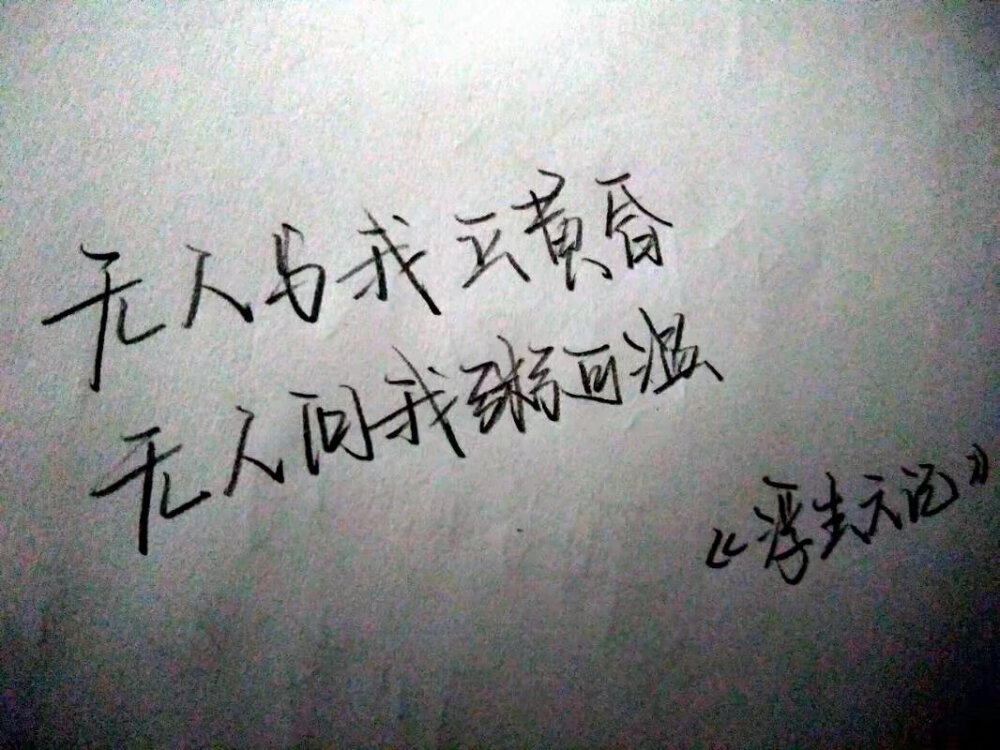 无人与我立黄昏
无人问我粥可温
《浮生六记》